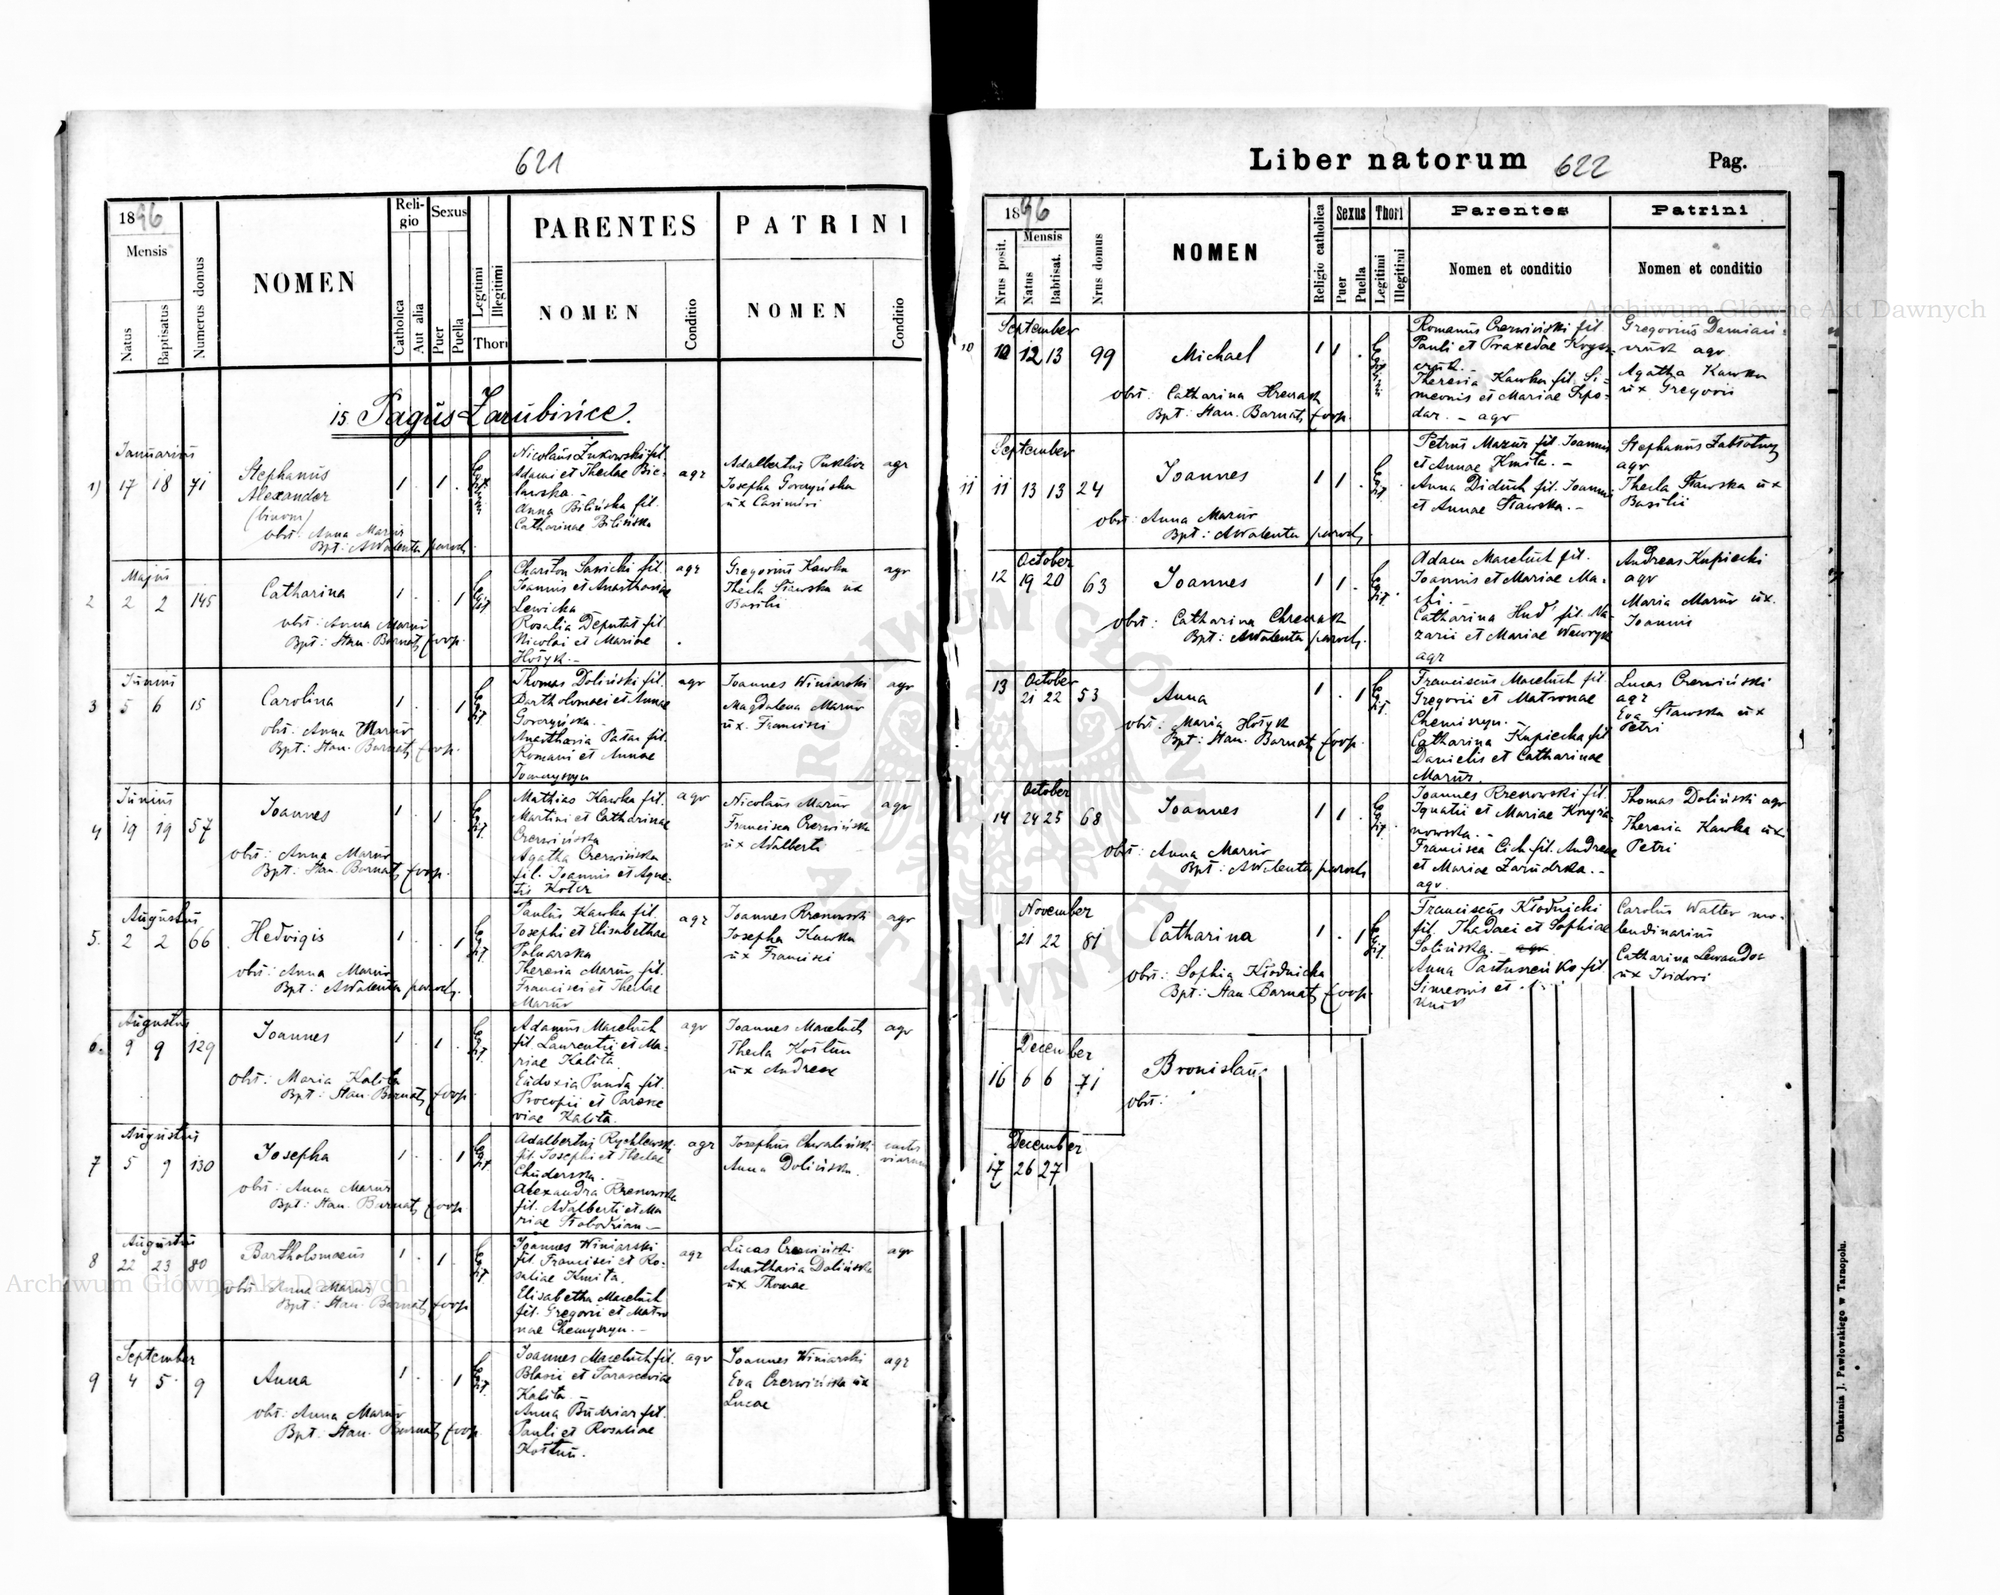 621
1896
Mensis
Natus
Baptisatus
Numerus domus
NOMEN
Religio
Catholica
Aut alia
Sexus
Puer
Puella
Legitimi
Illegitimi
Thori
PARENTES
NOMEN
Conditio
PATRINI
NOMEN
Conditio
15. Pagus Zarubińce.
Januarius
1) 17 18 71
Stephanus
Alexander
(binom)
obst: Anna Marur
Bpt: AWalenta paroch.
1 . 1 .
Nicolaus Żukowski fil.
Adami et Theclae Bie-
lawska
Anna Bilińska fil.
Catharinae Bilińska
agr
Adalbertus Puklicz
Josepha Gorczyńska
ux Casimiri
agr
Majus
2 2 2 145
Catharina
obst: Anna Marur
Bpt: Stan. Barnats coop.
1 . . 1
Chariton Sawicki fil.
Joannis et Anasthasiae
Lewicka
Rosalia Deputat fil
Nicolai et Mariae
Hożyk. –
agr
Gregorius Kawka
Thecla Stawska ux
Basilii
agr
Junius
3 5 6 15
Carolina
obst: Anna Marur
Bpt: Stan. Barnats coop.
1 . . 1
Thomas Doliński fil.
Bartholomei et Annae
Gorczyńska. –
Anasthasia Patar fil.
Romani et Annae
agr
Joannes Winiarski
Magdalena Marur
ux. Francisci
agr
Junius
4 19 19 57
Joannes
obst: Anna Marur
Bpt: Stan. Barnats coop.
1 . 1 .
Mathias Kawka fil.
Martini et Catharinae
Czerwińska
Agatha Czerwińska
fil. Joannis et Agne-
tis Koter
agr
Nicolaus Marur
Francisca Czerwińska
ux Adalberti
agr
Augustus
5. 2 2 66
Hedvigis
obst: Anna Marur
Bpt: AWalenta paroch.
1 . . 1
Paulus Kawka fil.
Josephi et Elisabethae
Polnarska
Theresia Marur fil.
Francisci et Theclae
Marur
agr
Joannes Rzenowski
Josepha Kawka
ux Francisci
agr
Augustus
6. 9 9 129
Joannes
obst: Maria Kalita
Bpt: Stan. Barnats coop.
1 . 1 .
Adamus Maceluch
fil. Laurentii et Ma-
riae Kalita
Eudoxia Punda fil.
Procopii et Parasce
viae Kalita.
agr
Joannes Maceluch
Thecla Kostun
ux Andreae
agr
Augustus
7 5 9 130
Josepha
obst: Anna Marur
Bpt: Stan. Barnats coop.
1 . . 1
Adalbertus Rychlewski
fil. Josephi et Theclae
Chuderska.
Alexandra Rzenowska
fil. Adalberti et Ma
riae Slobodzian –
agr
Josephus Chwaliński
Anna Dolińska.
Augustus
8 22 23 80
Bartholomaeus
obst: Anna Marur
Bpt: Stan. Barnats coop.
1 . 1 .
Joannes Winiarski
fil. Francisci et Ro-
saliae Kmita.
Elisabetha Maceluch
fil. Gregorii et Matro
nae Chemyszyn. –
agr
Lucas Czerwiński
Anasthasia Dolińska
ux Thomae
agr
September
9 4 5 9
Anna
obst: Anna Marur
Bpt: Stan. Barnats coop.
1 . . 1
Joannes Maceluch fil.
Blasii et Parasceviae
Kalita
Anna Budniar fil.
Pauli et Rosaliae
Kostun.
agr
Joannes Winiarski
Eva Czerwińska ux
Lucae
agr
Liber natorum 622 Pag.
1896
Nrus posit.
Mensis
Natus
Babtisat.
Nrus domus
NOMEN
Religio catholica
Sexus
Puer
Puella
Thori
Legitimi
Illegitimi
Parentes
Nomen et conditio
Patrini
Nomen et conditio
September
10 12 13 99
Michael
obst: Catharina Hrenach
Bpt: Stan. Barnats coop.
1 1 .
Romanus Czerwiński fil.
Pauli et Praxedae
Theresia Kawka fil. Si-
meonis et Mariae Hospo-
dar. – agr
Gregorius Damian-
czuk agr
Agatha Kawka
ux Gregorii
September
11 13 13 24
Joannes
obst: Anna Marur
Bpt: AWalenta paroch.
1 1 .
Petrus Marur fil. Joannis
et Annae Kmita. –
Anna Diduch fil. Joannis
et Annae Stawska. –
Stephanus Zabłotny
agr
Thecla Stawska ux
Basilii
October
12 19 20 63
Joannes
obst: Catharina Chrenach
Bpt: AWalenta paroch.
1 1 .
Adam Maceluch fil.
Joannis et Mariae
Catharina Hud fil. Na-
zarii et Mariae
agr
Andreas Kupiecki
agr
Maria Marur ux.
Joannis
October
13 21 22 53
Anna
obst: Maria Hożyk
Bpt: Stan. Barnats coop.
1 . 1
Franciscus Maceluch fil
Gregorii et Matronae
Chemiszyn. –
Catharina Kupiecka fil
Danielis et Catharinae
Marur.
Lucas Czerwiński
agr
Eva Stawska ux
Petri
October
14 24 25 68
Joannes
obst: Anna Marur
Bpt: AWalenta paroch.
1 1 .
Joannes Rzenowski fil.
Ignatii et Mariae
Francisca Cich fil. Andreae
et Mariae Zarudzka. –
agr
Thomas Doliński agr
Theresia Kawka ux
Petri
November
21 22 81
Catharina
obst: Sophia Kłodnicka
Bpt: Stan. Barnats coop.
1 . 1
Franciscus Kłodnicki
fil. Thadaei et Sophiae
Solińska.
Anna Pastuszeńko fil.
Simeonis et
Carolus Walter mo-
lendinarius
Catharina Lewandos
ux Isidori
December
16 6 6 71
Bronislaus
obst:
December
17 26 27
Drukarnia J. Pawłowskiego w Tarnopolu.
Archiwum Główne Akt Dawnych
Archiwum Główne Akt Dawnych
ARCHIWUM GŁÓWNE AKT DAWNYCH